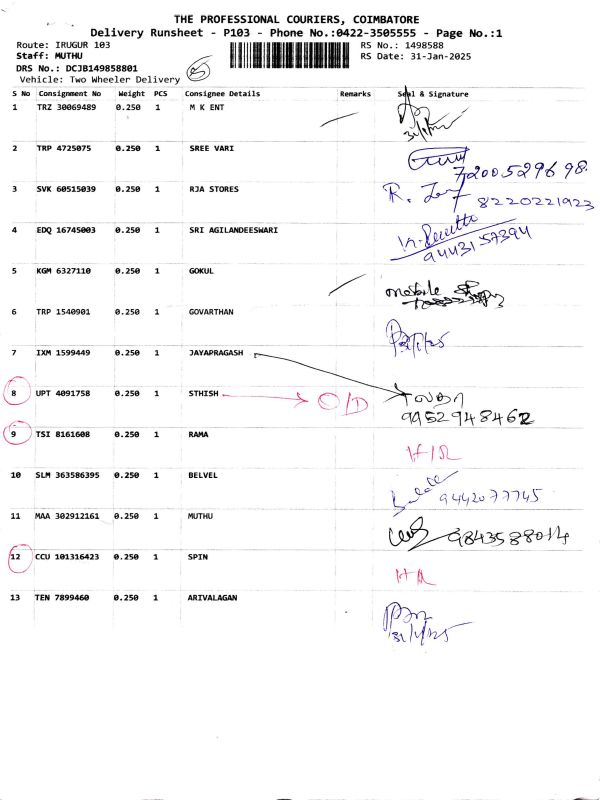 THE PROFESSIONAL COURIERS, COIMBATORE
Delivery Runsheet - P103 - Phone No.:0422-3505555 - Page No.:1
Route: IRUGUR 103 RS No.: 1498588
Staff: MUTHU RS Date: 31-Jan-2025
DRS No.: DCJB149858801
Vehicle: Two Wheeler Delivery
S No Consignment No Weight PCS Consignee Details Remarks Seal & Signature
1 TRZ 30069489 0.250 1 M K ENT
2 TRP 4725075 0.250 1 SREE VARI
7200529698
3 SVK 60515039 0.250 1 RJA STORES R.
8220221923
4 EDQ 16745003 0.250 1 SRI AGILANDEESWARI
9443157394
5 KGM 6327110 0.250 1 GOKUL
mobile
6 TRP 1540901 0.250 1 GOVARTHAN
7 IXM 1599449 0.250 1 JAYAPRAGASH
8 UPT 4091758 0.250 1 STHISH O/D லதா
9952948462
9 TSI 8161608 0.250 1 RAMA
10 SLM 363586395 0.250 1 BELVEL 9442077745
11 MAA 302912161 0.250 1 MUTHU 9843588014
12 CCU 101316423 0.250 1 SPIN
13 TEN 7899460 0.250 1 ARIVALAGAN
31/1/25